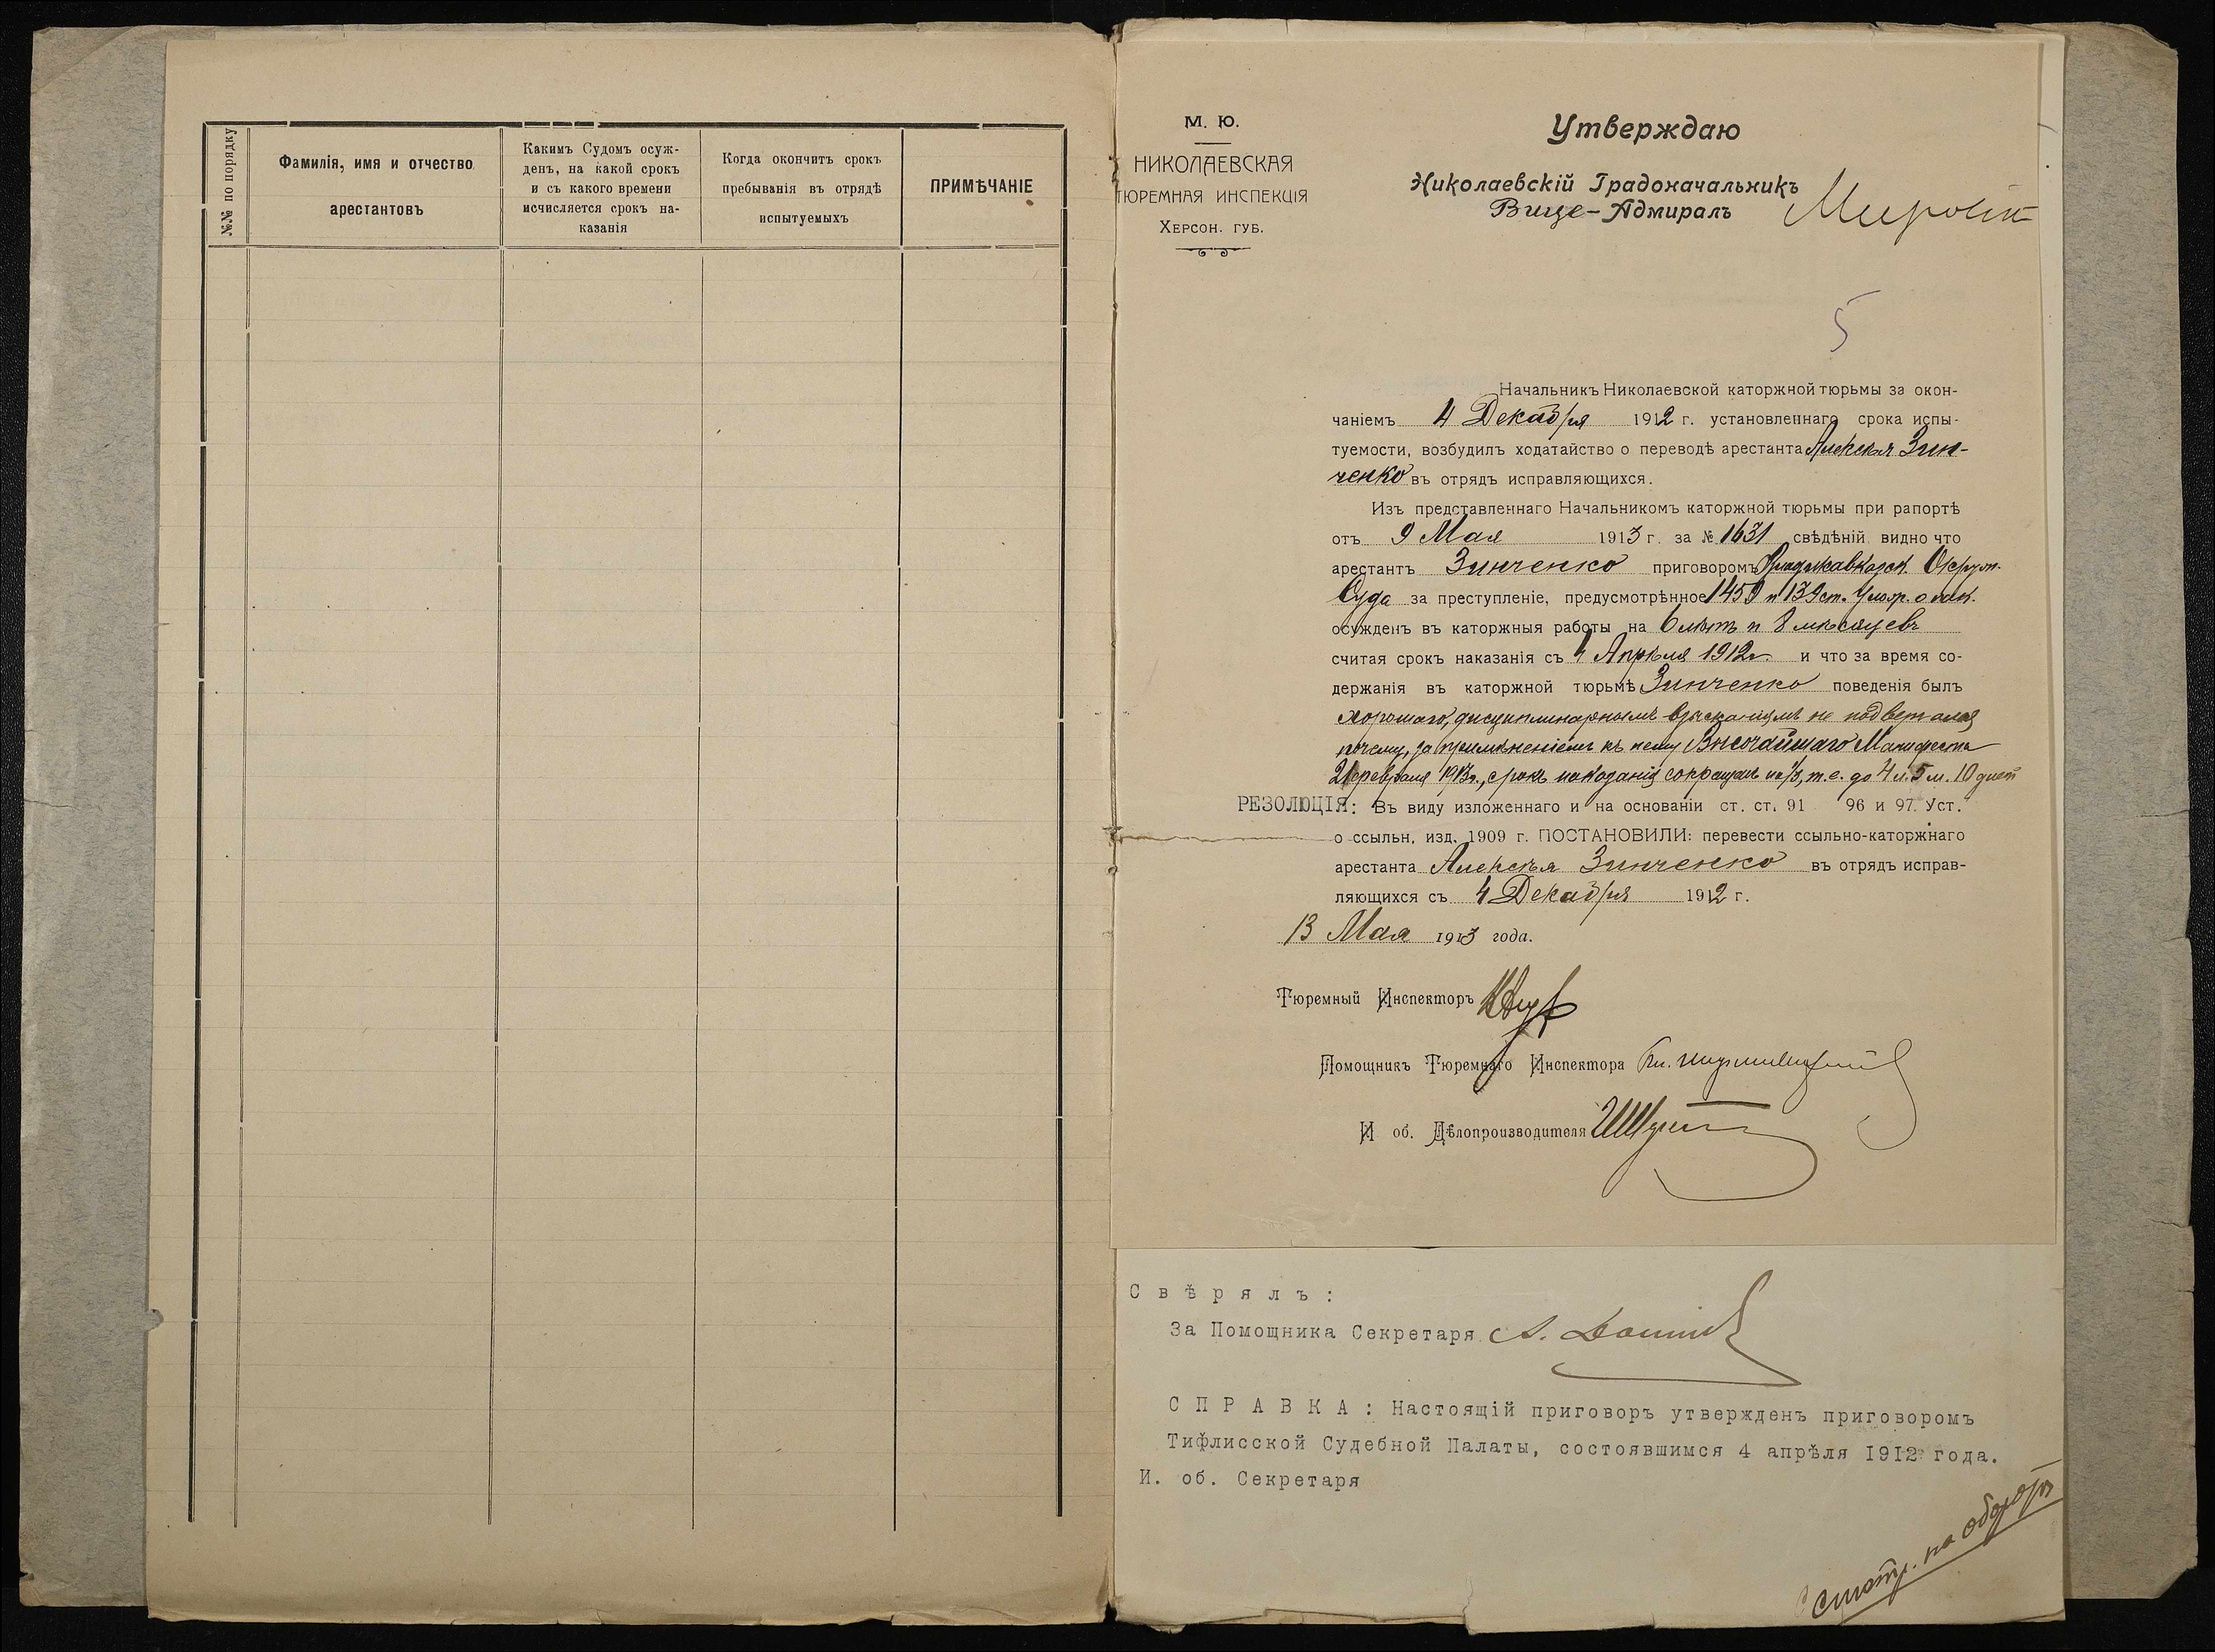 №№ по порядку
Фамилія, имя и отчество
арестантовъ
Какимъ Судомъ осуж-
денъ, на какой срокъ
и съ какого времени
исчисляется срокъ на-
казанія
Когда окончитъ срокъ
пребыванія въ отрядѣ
испытуемыхъ
ПРИМѢЧАНІЕ
М. Ю.
НИКОЛАЕВСКАЯ
ТЮРЕМНАЯ ИНСПЕКЦІЯ
ХЕРСОН. ГУБ.
Утверждаю
Николаевскій Градоначальникъ
Вице-Адмиралъ
5
Начальникъ Николаевской каторжной тюрьмы за окон-
чаніемъ 4 Декабря 1912 г. установленнаго срока испы-
туемости, возбудилъ ходатайство о переводѣ арестанта Алексѣя Зин-
ченко въ отрядъ исправляющихся.
Изъ представленнаго Начальникомъ каторжной тюрьмы при рапортѣ
отъ 9 Мая 1913 г. за № 1631 свѣдѣній видно что
арестантъ Зинченко приговоромъ Владикавказск. Окружн.
Суда за преступленіе, предусмотрѣнное 1459 и 139 ст. Улож. о нак.
осужденъ въ каторжныя работы на 6 лѣтъ и 8 мѣсяцевъ
считая срокъ наказанія съ 4 Апрѣля 1912 г. и что за время со-
держанія въ каторжной тюрьмѣ Зинченко поведенія былъ
хорошаго, дисциплинарнымъ взысканіямъ не подвергался
почему, за примѣненіемъ къ нему Высочайшаго Манифеста
21 февраля 1913 г., срокъ наказанія сокращенъ на 1/3, т.е. до 4 л. 5 м. 10 дней
РЕЗОЛЮЦІЯ: Въ виду изложеннаго и на основаніи ст. ст. 91 96 и 97. Уст.
о ссыльн. изд. 1909 г. ПОСТАНОВИЛИ: перевести ссыльно-каторжнаго
арестанта Алексѣя Зинченко въ отрядъ исправ-
ляющихся съ 4 Декабря 1912 г.
13 Мая 1913 года.
Тюремный Инспекторъ
Помощникъ Тюремнаго Инспектора Кн.
И об. Дѣлопроизводителя
Свѣрялъ:
За Помощника Секретаря А.
СПРАВКА: Настоящій приговоръ утвержденъ приговоромъ
Тифлисской Судебной Палаты, состоявшимся 4 апрѣля 1912 года.
И. об. Секретаря
Смотр. на оборотѣ